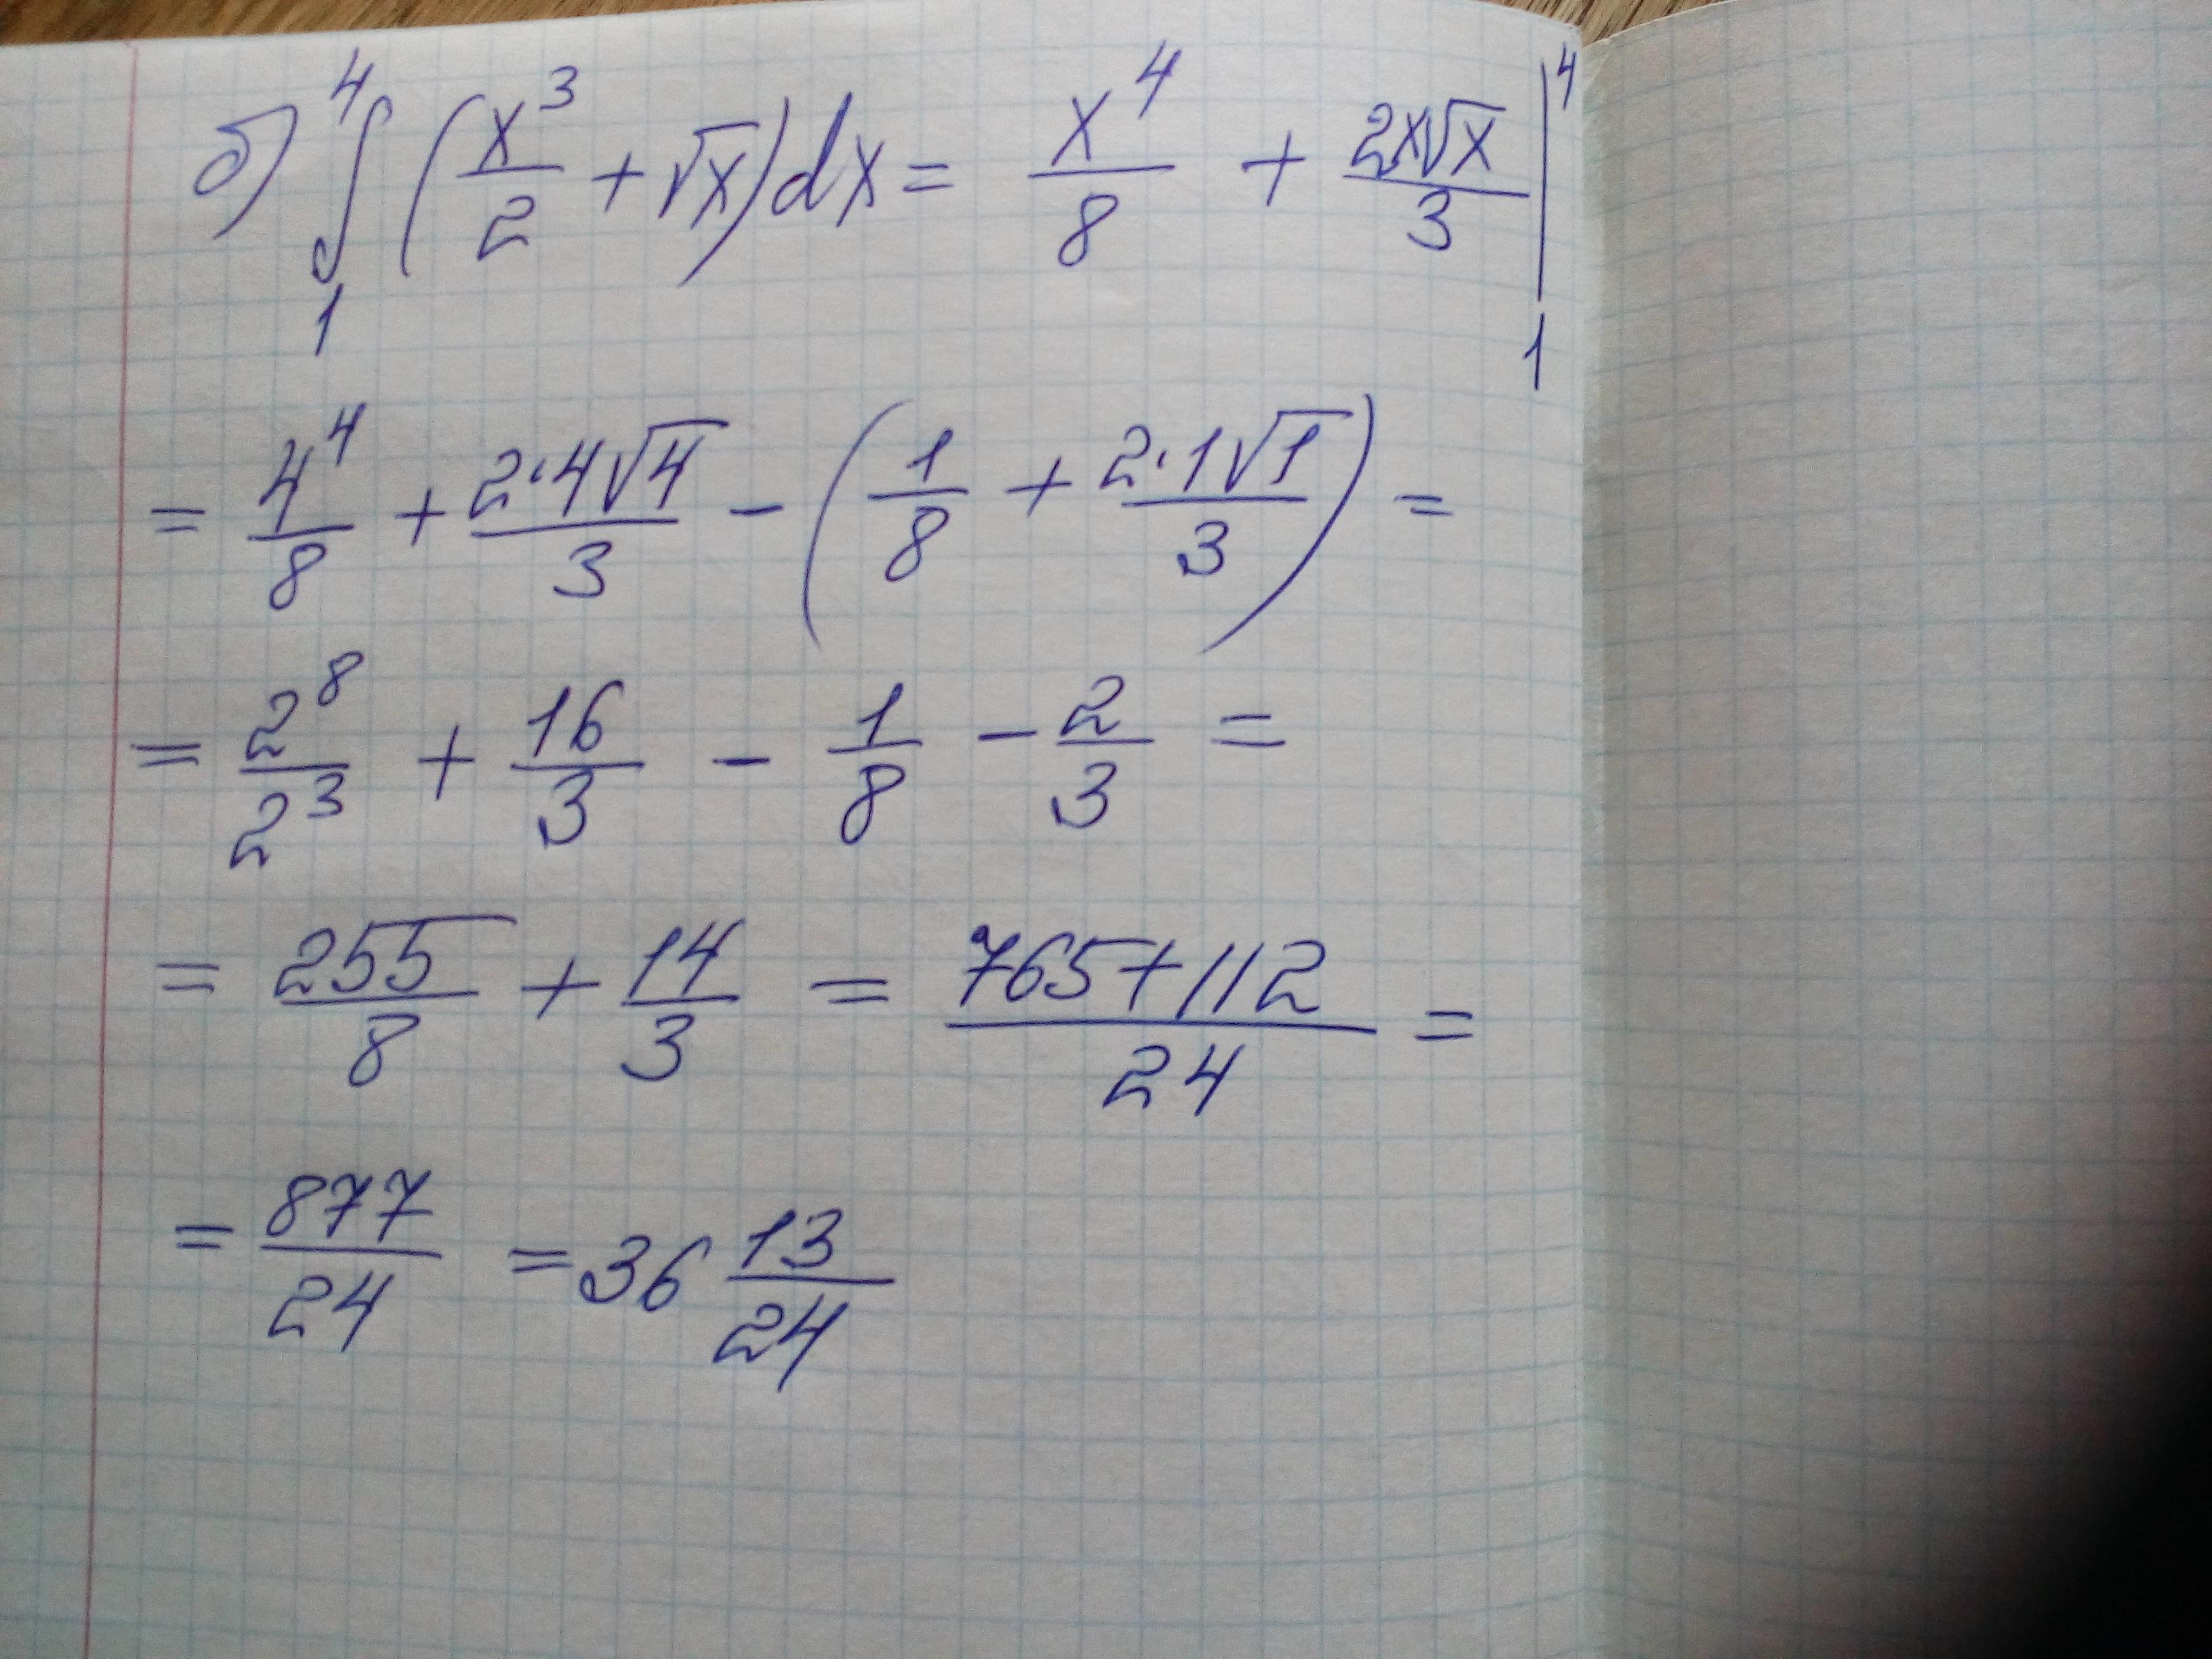 б) ∫₁⁴ (x³/2 + √x) dx = x⁴/8 + 2x√x/3 |₁⁴
= 4⁴/8 + 2·4√4/3 − (1/8 + 2·1√1/3) =
= 2⁸/2³ + 16/3 − 1/8 − 2/3 =
= 255/8 + 14/3 = 765+112/24 =
= 877/24 = 36 13/24